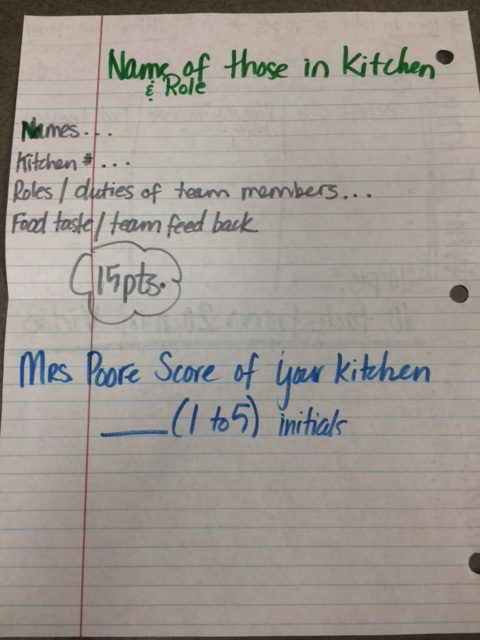 Name of those in Kitchen
& Role
Names...
Kitchen #...
Roles / duties of team members...
Food taste / team feed back
15pts.
Mrs Poore Score of your kitchen
___ (1 to 5) initials